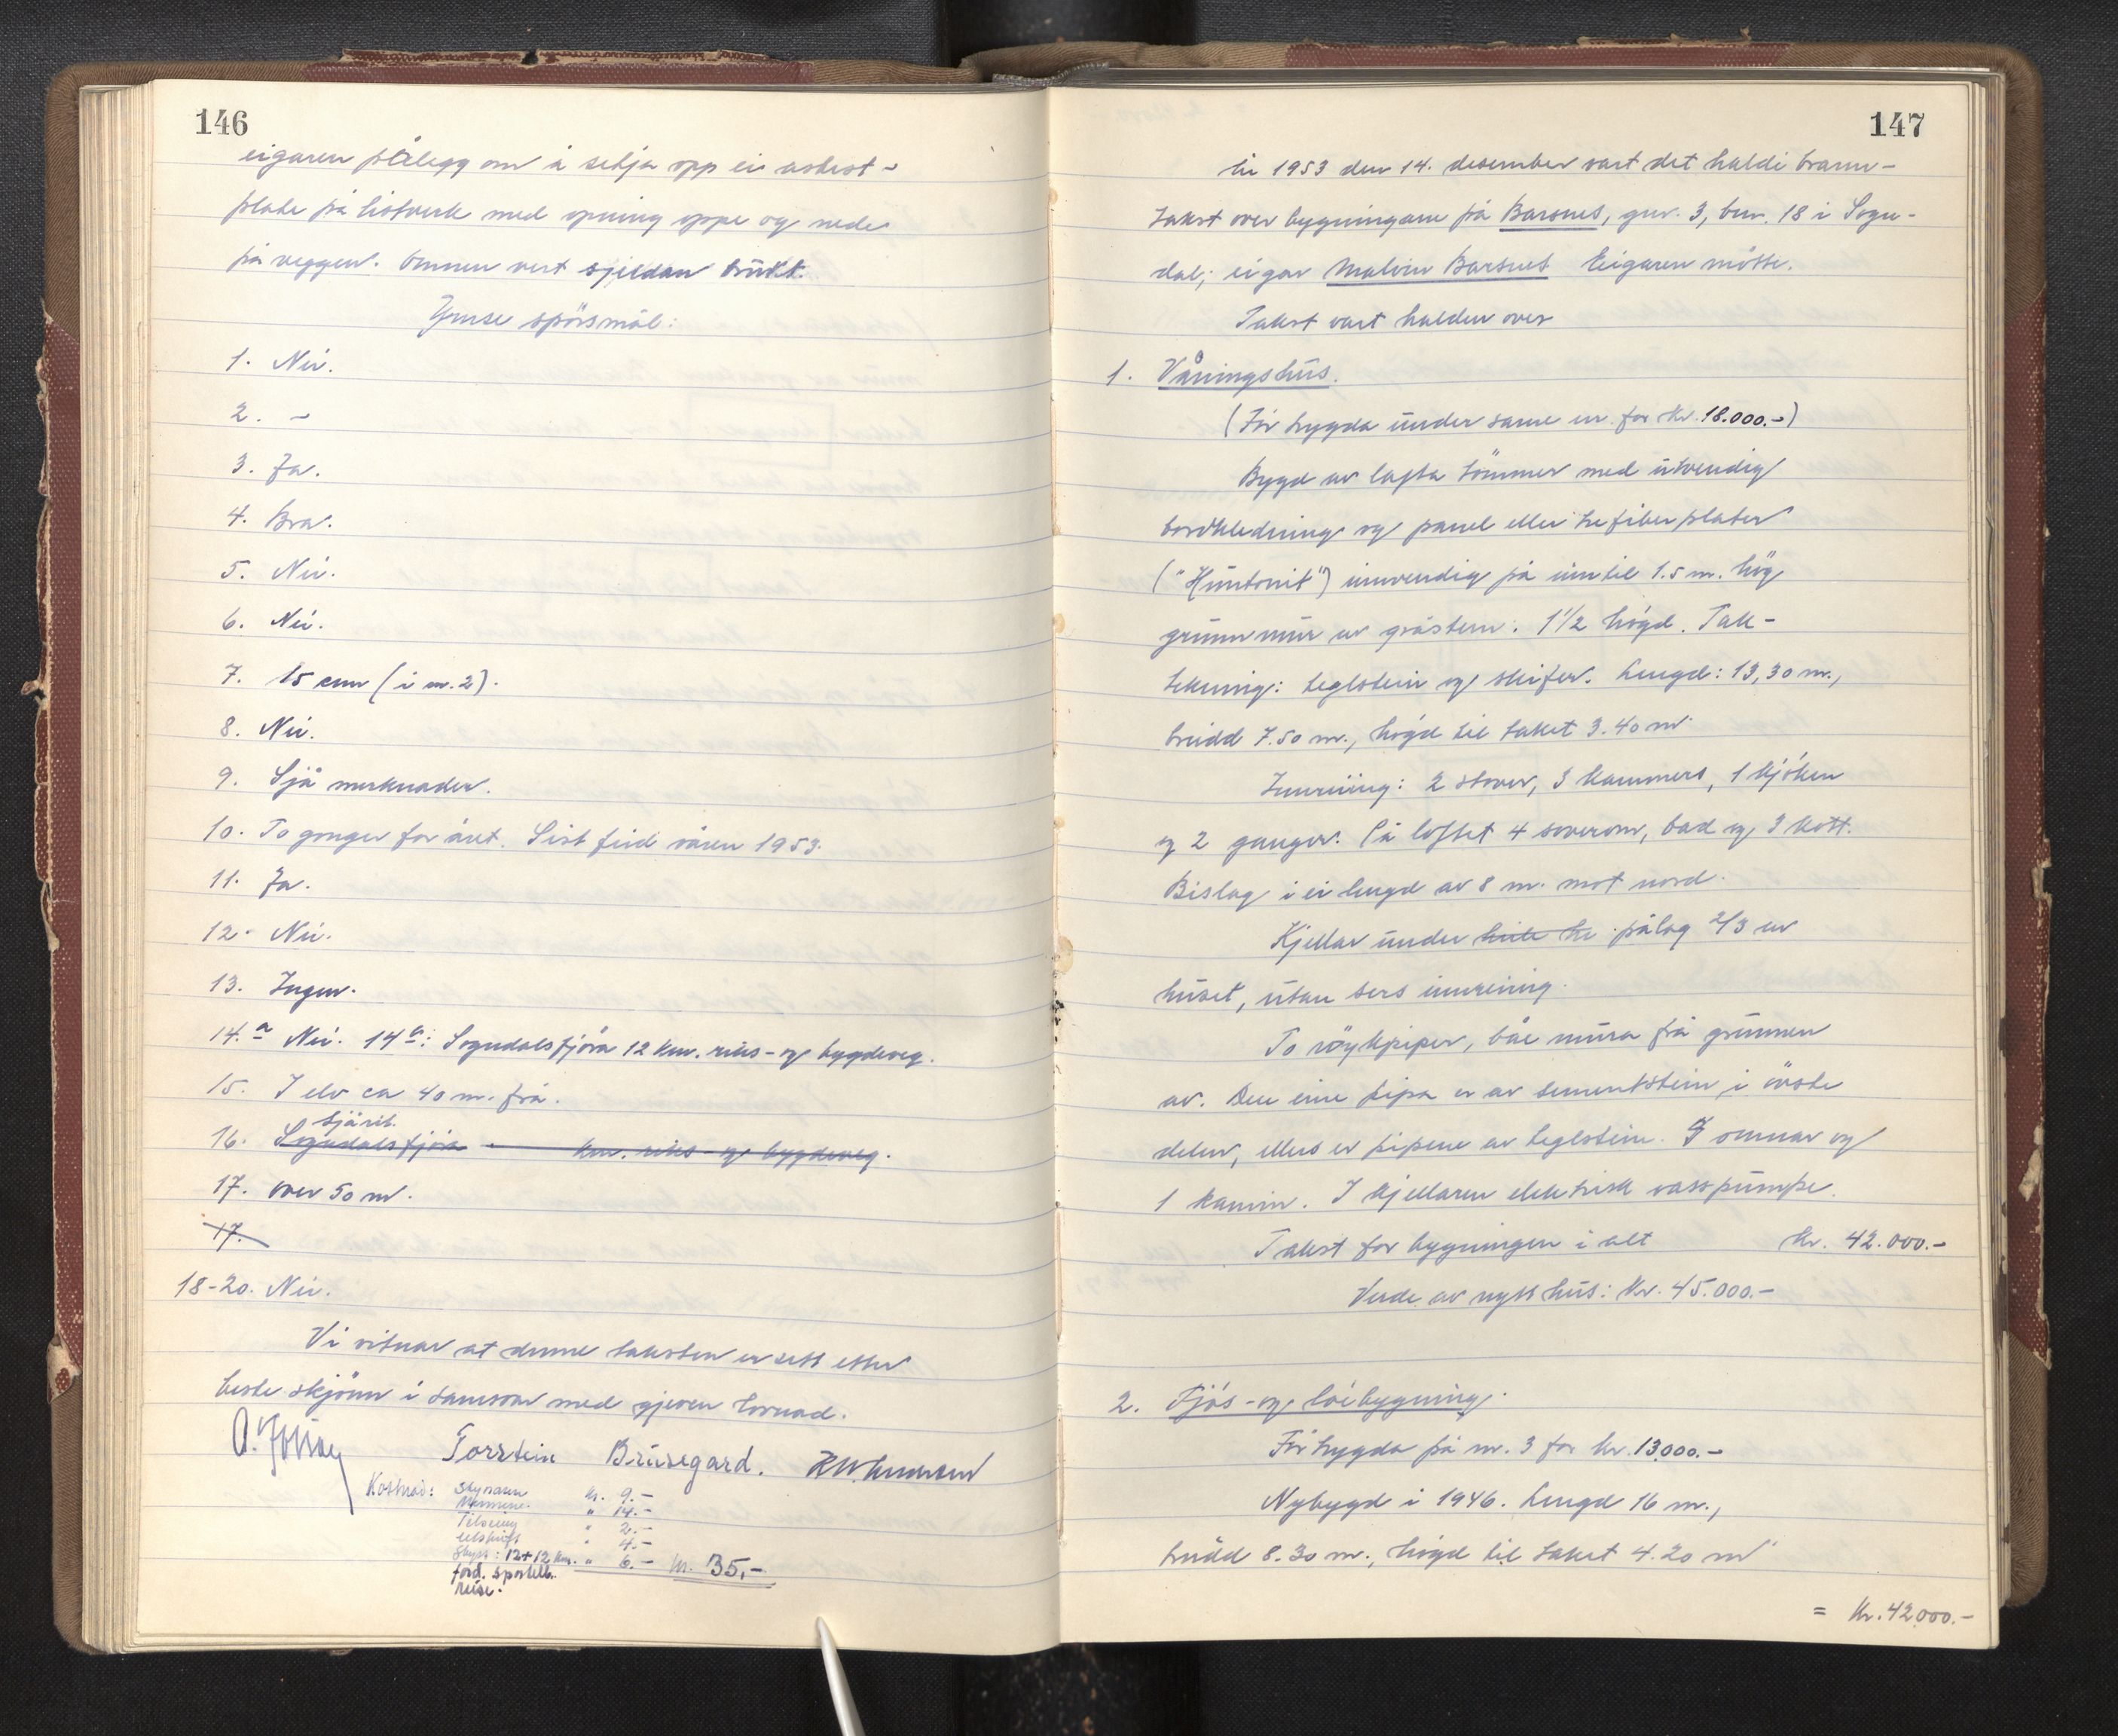 146
eigaren pålegg om å setja opp ei asbest-
plate på listverk med opning oppe og nede
på veggen. Omnen vert sjeldan brukt.
Ymse spörsmål:
1. Nei.
2. -
3. Ja.
4. Bra.
5. Nei.
6. Nei.
7. 15 cm (i nr. 2).
8. Nei.
9. Sjå merknader.
10. To gonger for året. Sist feid våren 1953.
11. Ja.
12. Nei.
13. Ingen.
14.a Nei. 14b: Sogndalsfjöra 12 km. riks- og bygdeveg.
15. I elv ca 40 m. frå.
Sjå 14b.
16. Sogndalsfjöra - km. riks- og bygdeveg.
17. Over 50 m.
17.
18-20. Nei.
Vi vitnar at denne taksten er sett etter
beste skjönn i samsvar med gjeven lovnad.
Torstein Brusegard.
Kostnad: Styraren kr. 9.-
Mennene. " 14.-
Tilsening " 2.-
Utskrift " 4.-
Skyss: 12+12 km. " 6.- kr. 35,-
ford. sportell.
reise.
147
År 1953 den 14. desember vart det halde brann-
takst over bygningane på Barsnes, gnr. 3, bnr. 18 i Sogn-
dal; eigar Malvin Barsnes Eigaren mötte.
Takst vart halden over
1. Våningshus.
(För trygda under same nr. for kr. 18.000.-)
Bygd av lafta tömmer med utvendig
bordkledning og panel eller trefiberplater
("Huntonit") innvendig på inntil 1.5 m. hög
grunnmur av gråstein. 1 1/2 högd. Tak-
tekning: teglstein og skifer. Lengd: 13,30 m.,
breidd 7.50 m., högd til taket 3.40 m.
Innreiing: 2 stover, 3 kammers, 1 kjöken
og 2 ganger. På loftet 4 soverom, bad og 3 kott.
Bislag i ei lengd av 8 m. mot nord.
Kjellar under heile hu pålag 2/3 av
huset, utan sers innreiing.
To röykpiper, båe mura frå grunnen
av. Den eine pipa er av sementstein i övste
delen, ellers er pipene av teglstein. 5 omnar og
1 kamin. I kjellaren elektrisk vasspumpe.
Takst for bygningen i alt kr. 42.000.-
Verde av nytt hus: kr. 45.000.-
2. Fjös- og löebygning.
För trygda på nr. 3 for kr. 13.000.-
Nybygd i 1946. Lengd 16 m.,
breidd 8.30 m., högd til taket 4.20 m
= Kr. 42.000.-